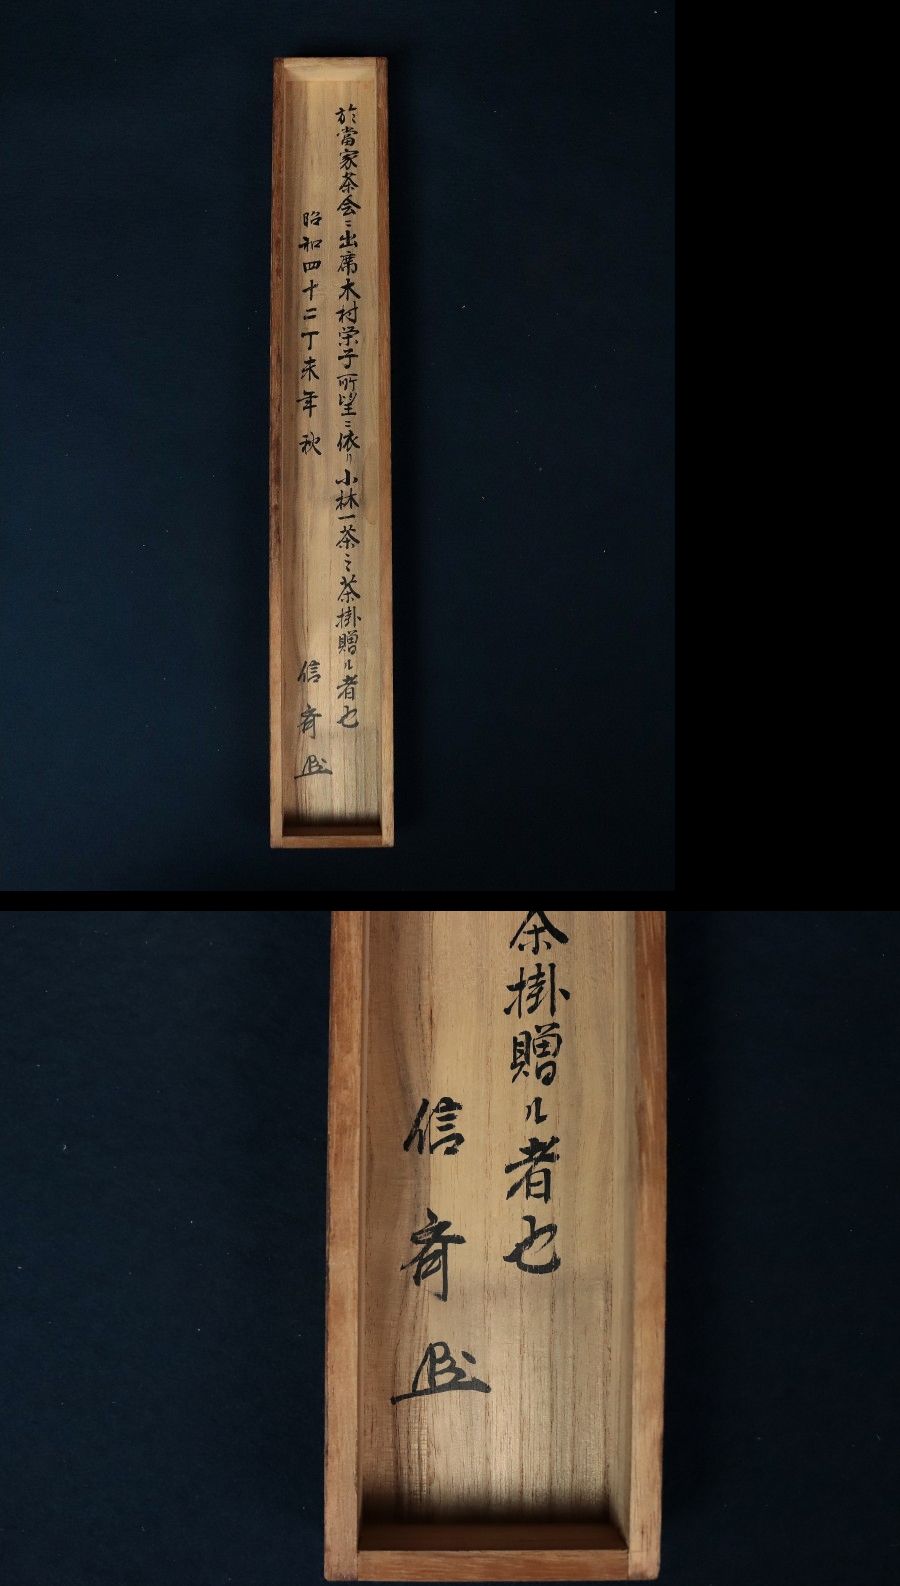 於當家茶会ニ出席木村栄子所望ニ依リ小林一茶之茶掛贈ル者也
昭和四十二丁未年秋
信斉
茶掛贈ル者也
信斉